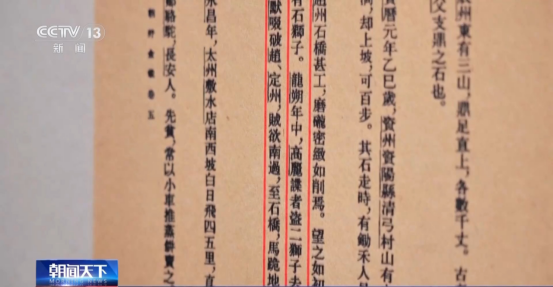 CCTV 13
新闻
辰州東有三山，鼎足直上，各數千丈。古
父支鼎之石也。
寶曆元年乙巳歲，資州資陽縣清弓村山有
灣，却上坡，可百步。其石走時，有鋤禾人見
趙州石橋甚工，磨礲密緻如削焉。望之如初
有石獅子。龍朔年中，高麗諜者盜二獅子去
默啜破趙、定州，賊欲南過，至石橋，馬跪地
永昌年，太州敷水店南西坡白日飛四五里，直
鄒駱駝，長安人。先貧，常以小車推蒸餅賣之
朝野僉載卷五
朝闻天下